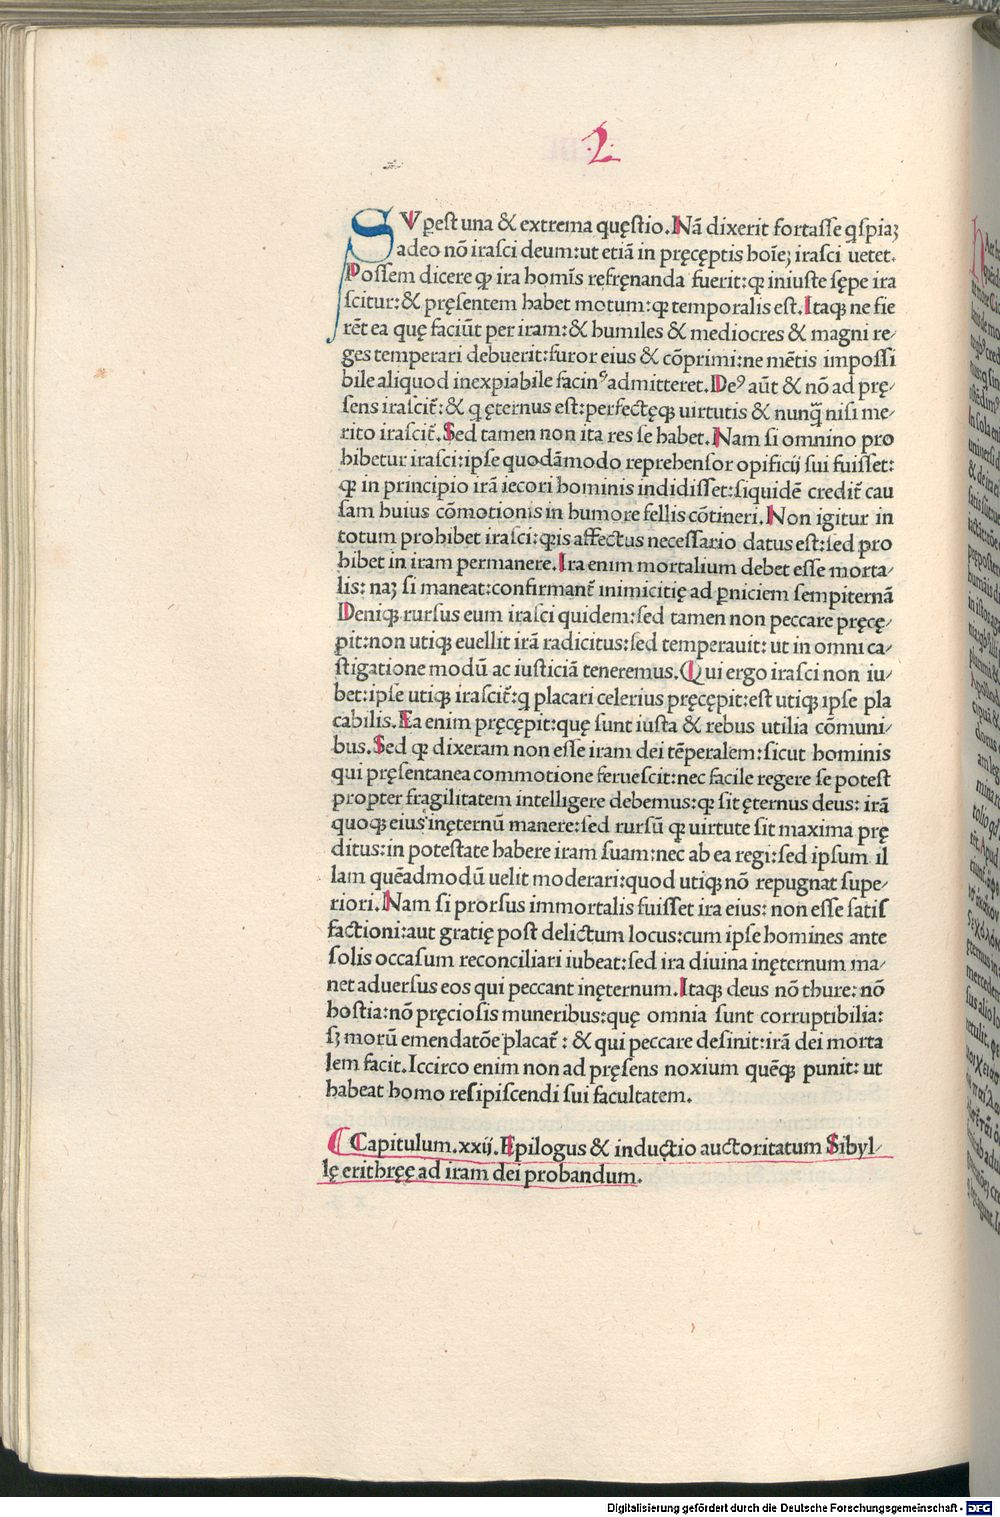 .2.
SVꝑest una & extrema quęstio. Nā dixerit fortasse qspiaꝫ
adeo nō irasci deum: ut etiā in pręceptis hoīeꝫ irasci uetet.
Possem dicere ꝙ ira homīs refrenanda fuerit: ꝙ iniuste sępe ira
scitur: & pręsentem habet motum: ꝙ temporalis est. Itaqꝫ ne fie
rēt ea quę faciūt per iram: & humiles & mediocres & magni re⸗
ges temperari debuerit: furor eius & cōprimi: ne mētis impossi
bile aliquod inexpiabile facinꝰ admitteret. Deꝰ aūt & nō ad prę⸗
sens irascit̃: & q ęternus est: perfectęqꝫ uirtutis & nunq̄ nisi me⸗
rito irascit̃. Sed tamen non ita res se habet. Nam si omnino pro
hibetur irasci: ipse quodāmodo reprehensor opificij sui fuisset:
ꝙ in principio irā iecori hominis indidisset: siquidē credit̃ cau
sam huius cōmotionis in humore fellis cōtineri. Non igitur in
totum prohibet irasci: ꝙis affectus necessario datus est: sed pro
hibet in iram permanere. Ira enim mortalium debet esse morta⸗
lis: naꝫ si maneat: confirmant̃ inimicitię ad ꝑniciem sempiternā
Deniqꝫ rursus eum irasci quidem: sed tamen non peccare pręcę⸗
pit: non utiqꝫ euellit irā radicitus: sed temperauit: ut in omni ca⸗
stigatione modū ac iusticiā teneremus. Qui ergo irasci non iu⸗
bet: ipse utiqꝫ irascit̃: q placari celerius pręcępit: est utiqꝫ ipse pla
cabilis. Ea enim pręcępit: quę sunt iusta & rebus utilia cōmuni⸗
bus. Sed ꝙ dixeram non esse iram dei tēperalem: sicut hominis
qui pręsentanea commotione feruescit: nec facile regere se potest
propter fragilitatem intelligere debemus: ꝙ sit ęternus deus: irā
quoqꝫ eius inęternū manere: sed rursū ꝙ uirtute sit maxima prę
ditus: in potestate habere iram suam: nec ab ea regi: sed ipsum il
lam quēadmodū uelit moderari: quod utiqꝫ nō repugnat supe⸗
riori. Nam si prorsus immortalis fuisset ira eius: non esse satis
factioni: aut gratię post delictum locus: cum ipse homines ante
solis occasum reconciliari iubeat: sed ira diuina inęternum ma⸗
net aduersus eos qui peccant inęternum. Itaqꝫ deus nō thure: nō
hostia: nō pręciosis muneribus: quę omnia sunt corruptibilia:
sꝫ morū emendatōe placat̃: & qui peccare desinit: irā dei morta
lem facit. Iccirco enim non ad pręsens noxium quēqꝫ punit: ut
habeat homo resipiscendi sui facultatem.
Capitulum. xxij. Epilogus & inductio auctoritatum Sibyl⸗
lę erithręę ad iram dei probandum.
Digitalisierung gefördert durch die Deutsche Forschungsgemeinschaft - DFG